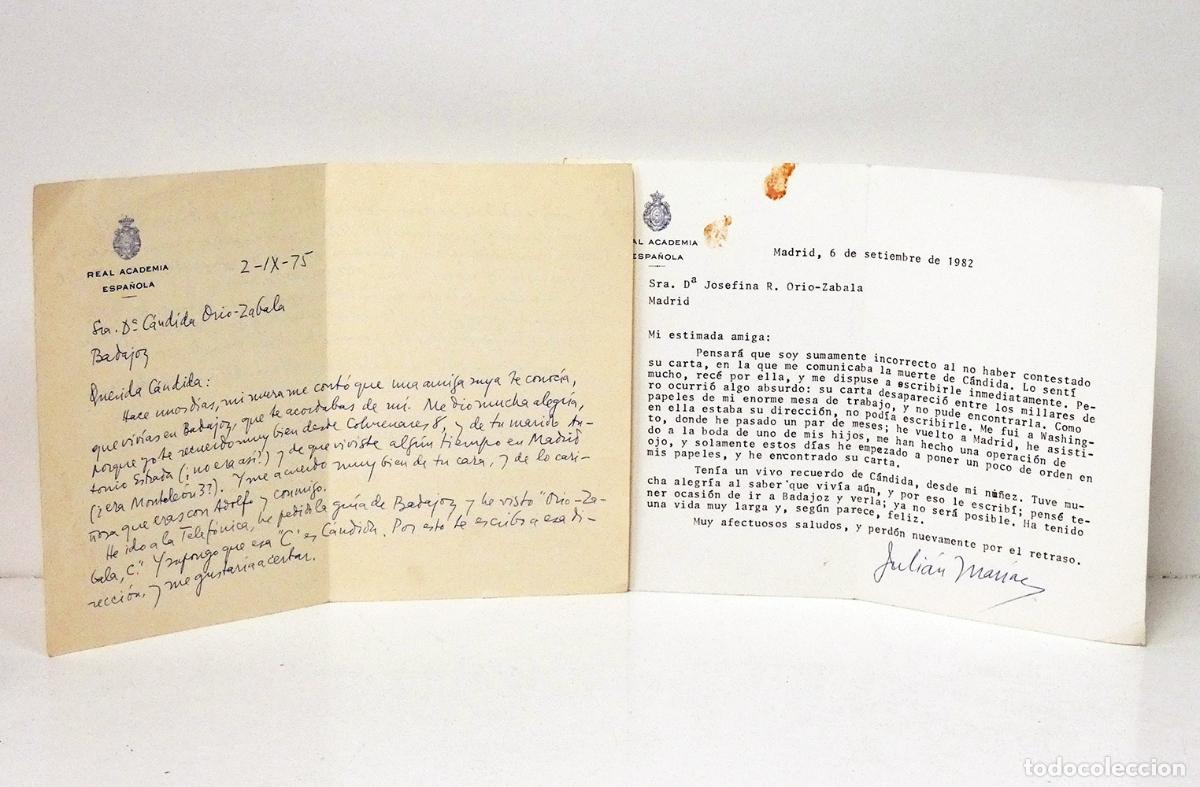 REAL ACADEMIA
ESPAÑOLA
2-IX-75
Sra. Dª Cándida Orio-Zabala
Badajoz
Querida Cándida:
Hace unos días, mi nuera me contó que una amiga suya te conocía,
que vivías en Badajoz, que te acordabas de mí. Me dio mucha alegría,
porque yo te recuerdo muy bien desde Colmenares 8, y de tu marido An-
tonio Estrada (¿no era así?) y de que viviste algún tiempo en Madrid
(¿era Monteleón 3?). Y me acuerdo muy bien de tu cara, y de lo cari-
ñosa que eras con Adolfo y conmigo.
He ido a la Telefónica, he pedido la guía de Badajoz y he visto "Orio-Za-
bala, C." Y supongo que esa "C" es Cándida. Por esto te escribo a esa di-
rección, y me gustaría acertar.
AL ACADEMIA
ESPAÑOLA
Madrid, 6 de setiembre de 1982
Sra. Dª Josefina R. Orio-Zabala
Madrid
Mi estimada amiga:
Pensará que soy sumamente incorrecto al no haber contestado
su carta, en la que me comunicaba la muerte de Cándida. Lo sentí
mucho, recé por ella, y me dispuse a escribirle inmediatamente. Pe-
ro ocurrió algo absurdo: su carta desapareció entre los millares de
papeles de mi enorme mesa de trabajo, y no pude encontrarla. Como
en ella estaba su dirección, no podía escribirle. Me fui a Washing-
to, donde he pasado un par de meses; he vuelto a Madrid, he asisti-
do a la boda de uno de mis hijos, me han hecho una operación de
ojo, y solamente estos días he empezado a poner un poco de orden en
mis papeles, y he encontrado su carta.
Tenía un vivo recuerdo de Cándida, desde mi niñez. Tuve mu-
cha alegría al saber que vivía aún, y por eso le escribí; pensé te-
ner ocasión de ir a Badajoz y verla; ya no será posible. Ha tenido
una vida muy larga y, según parece, feliz.
Muy afectuosos saludos, y perdón nuevamente por el retraso.
Julián Marías
todocoleccion